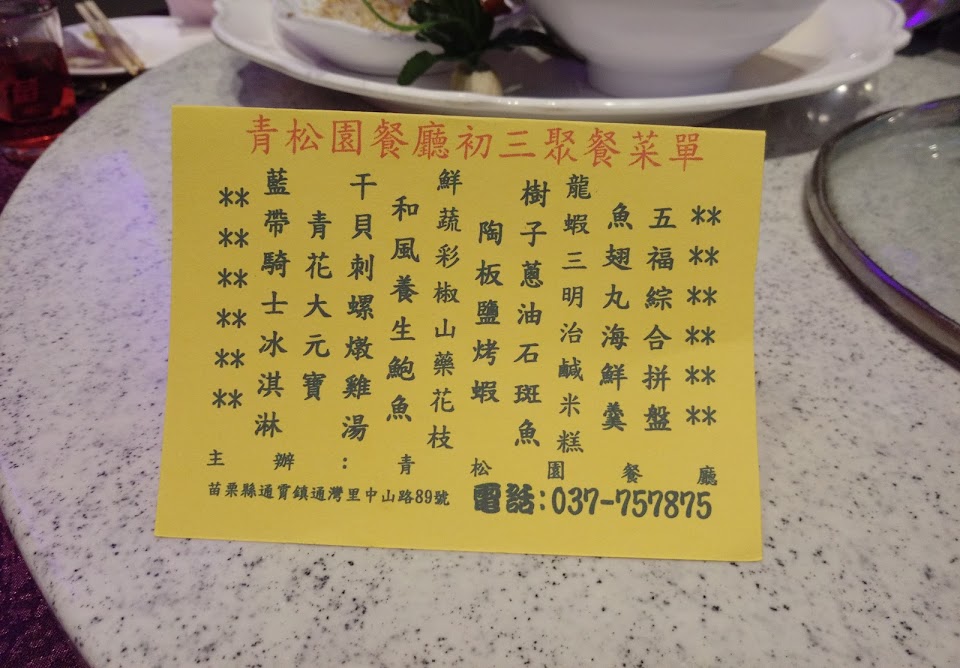 青松園餐廳初三聚餐菜單
******
五福綜合拼盤
魚翅丸海鮮羹
龍蝦三明治鹹米糕
樹子蔥油石斑魚
陶板鹽烤蝦
鮮蔬彩椒山藥花枝
和風養生鮑魚
干貝刺螺燉雞湯
青花大元寶
藍帶騎士冰淇淋
******
主辦：青松園餐廳
苗栗縣通霄鎮通灣里中山路89號 電話:037-757875